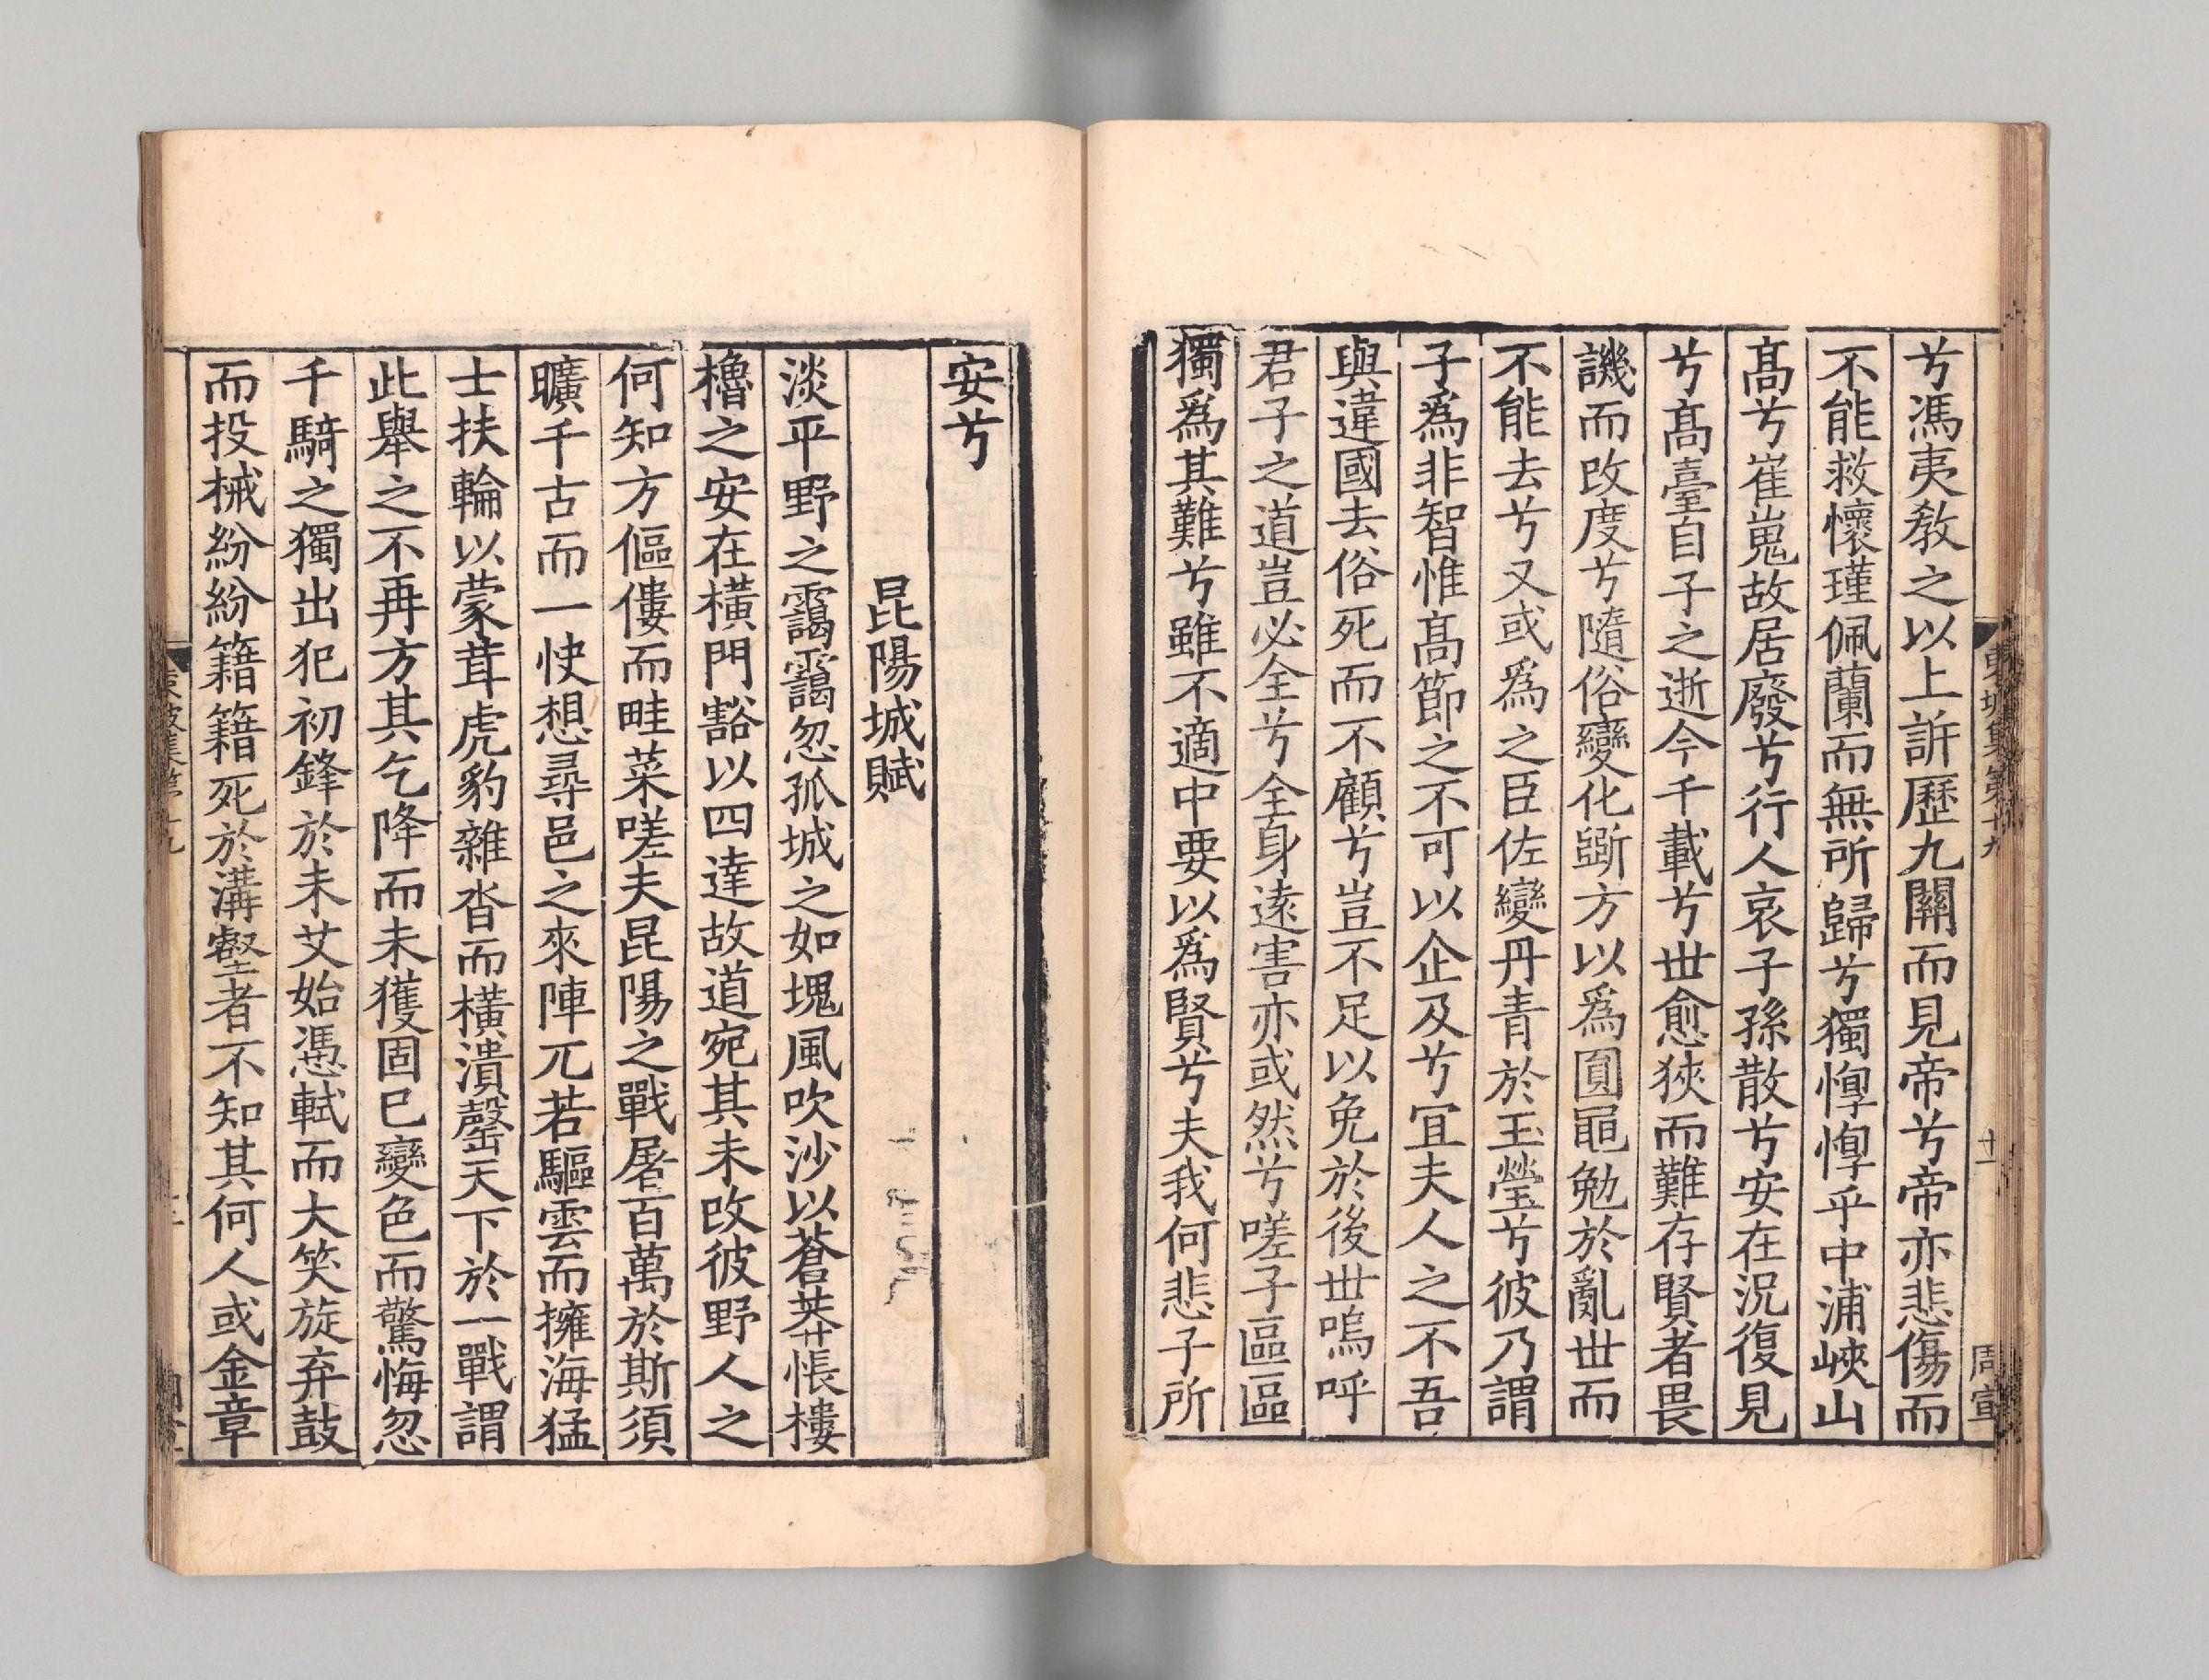 兮馮夷教之以上訴歷九關而見帝兮帝亦悲傷而
不能救懷瑾佩蘭而無所歸兮獨惸惸乎中浦峽山
髙兮崔嵬故居廢兮行人哀子孫散兮安在況復見
兮髙臺自子之逝今千載兮丗愈狹而難存賢者畏
譏而改度兮隨俗變化斲方以爲圎黽勉於亂丗而
不能去兮又或爲之臣佐變丹青於玉瑩兮彼乃謂
子爲非智惟髙節之不可以企及兮宜夫人之不吾
與違國去俗死而不顧兮豈不足以免於後丗嗚呼
君子之道豈必全兮全身遠害亦或然兮嗟子區區
獨爲其難兮雖不適中要以爲賢兮夫我何悲子所
東坡集第十九
廿一
周宣
安兮
昆陽城賦
淡平野之靄靄忽孤城之如塊風吹沙以蒼莽悵樓
櫓之安在橫門豁以四達故道宛其未改彼野人之
何知方傴僂而畦菜嗟夫昆陽之戰屠百萬於斯須
曠千古而一快想尋邑之來陣兀若驅雲而擁海猛
士扶輪以蒙茸虎豹雜沓而橫潰罄天下於一戰謂
此舉之不再方其乞降而未獲固已變色而驚悔忽
千騎之獨出犯初鋒於未艾始憑軾而大笑旋弃鼓
而投械紛紛籍籍死於溝壑者不知其何人或金章
東坡集第十九